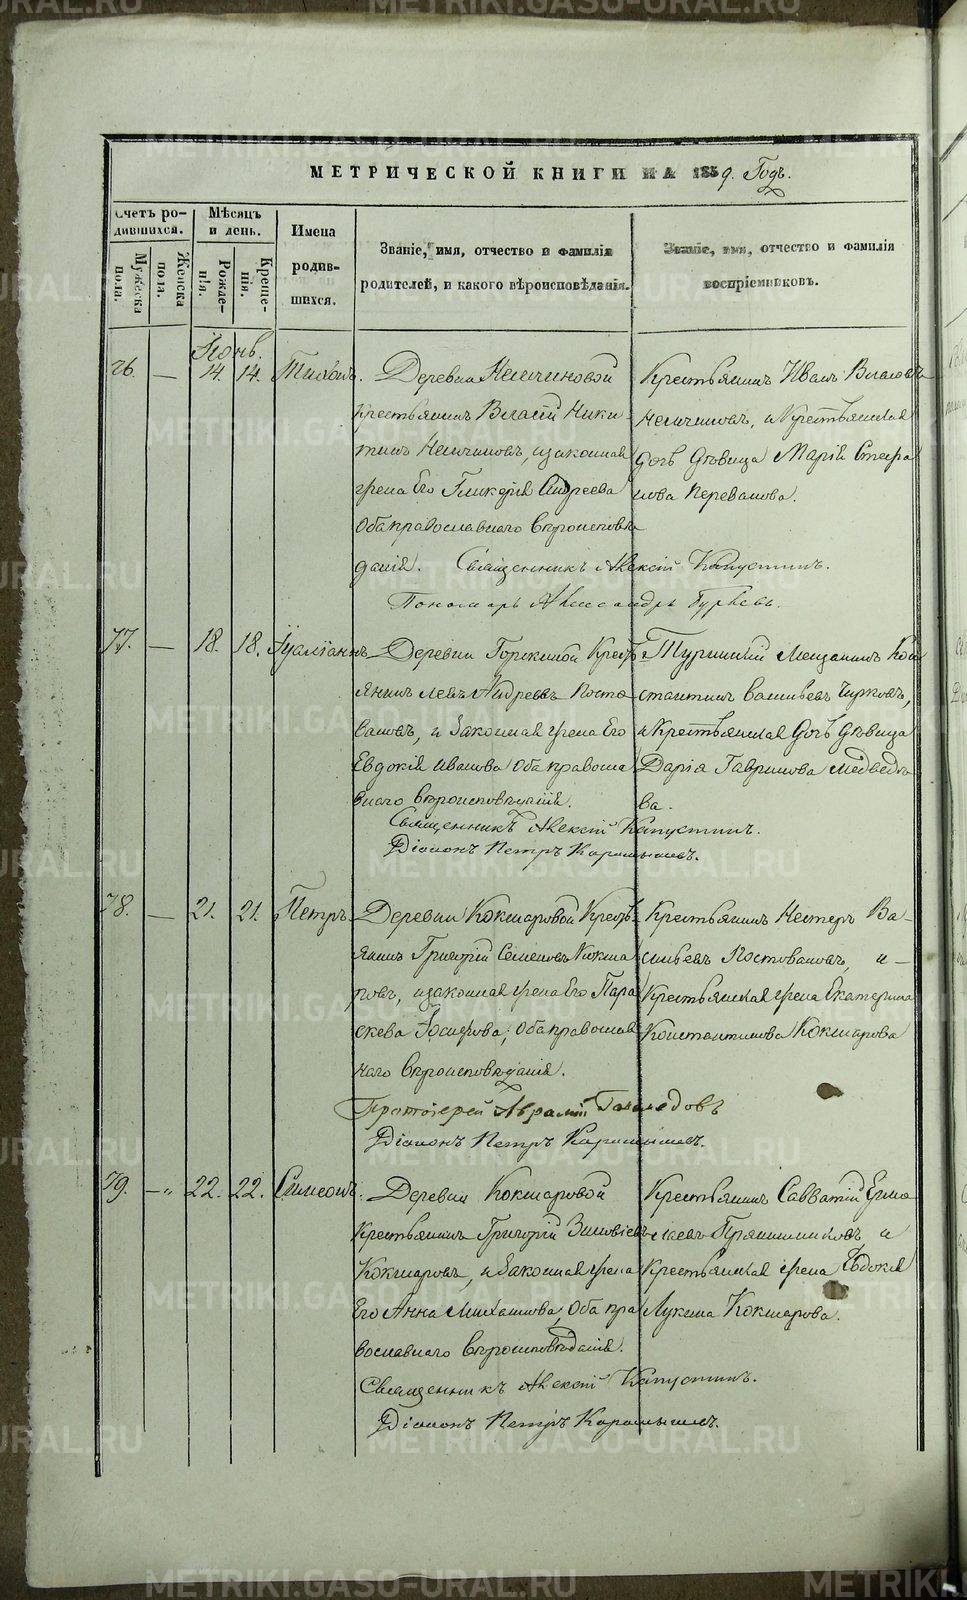 METRIKI.GASO-URAL.RU
МЕТРИЧЕСКОЙ КНИГИ НА 1859. Годъ.
Счетъ ро-
дившихся.
Мужеска
пола.
Женска
пола.
Мѣсяцъ
и день.
Рожде-
нія.
Креще-
нія.
Имена
родив-
шихся.
Званіе, имя, отчество и фамилія
родителей, и какого вѣроисповѣданія.
Званіе, имя, отчество и фамилія
воспріемниковъ.
76. — 14. 14. Тихонъ.
Деревни
Крестьянинъ Власій Ники-
тинъ изаконная
жена Его Гликерія Андреева
Оба православнаго Вѣроисповѣ
данія. Священникъ Алексій Капустинъ.
Пономарь Александръ Гурьевъ.
Крестьянинъ Иванъ Власовъ
и Крестьянская
дочь Дѣвица Марія Стефа
нова Перевалова.
77. — 18. 18.
Деревни Крестъ
янинъ Левъ Андреевъ Посто
валовъ, и Законная жена Его
Евдокія Иванова Оба правосла
внаго Вѣроисповѣданія.
Священникъ Алексій Капустинъ.
Діаконъ Петръ Карамышевъ.
Туринскій Мещанинъ Кон
стантинъ Васильевъ Чирковъ,
и Крестьянская Дочь Дѣвица
Дарія Гаврилова Медведѣ
ва.
78. — 21. 21. Петръ.
Деревни Кокшаровой Кресть-
янинъ Григорій Семеновъ Кокша
ровъ, изаконная жена Его Пара
скева Іосифова; Оба православ
наго Вѣроисповѣданія.
Протоіерей Аврамій
Діаконъ Петръ Карамышевъ.
Крестьянинъ Нестеръ Ва-
сильевъ Постоваловъ, и-
Крестьянская жена Екатерина
Константинова Кокшарова
79. — „ 22. 22. Симеонъ.
Деревни Кокшаровой
Крестьянинъ Григорій Зиновіевъ
Кокшаровъ, и Законная жена
Его Анна Михайлова, Оба пра
вославнаго Вѣроисповѣданія.
Священникъ Алексій Капустинъ.
Діаконъ Петръ Карамышевъ.
Крестьянинъ Савватій Ермо
лаевъ Прянишниковъ и
Крестьянская жена Евдокія
Лукина Кокшарова.